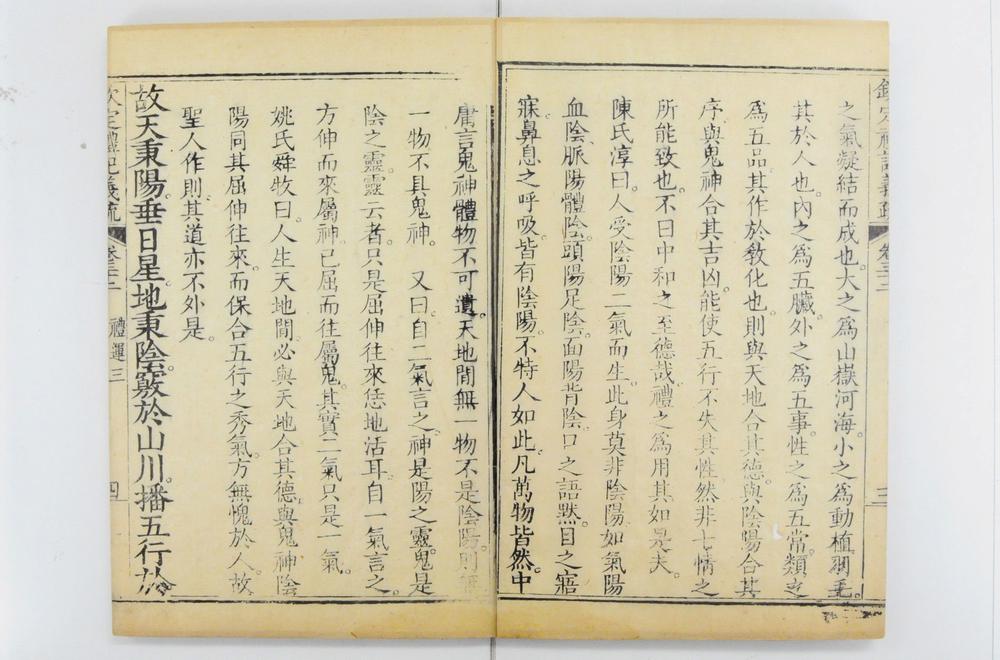 欽定禮記義疏 卷三十二 三
之氣凝結而成也。大之爲山嶽河海。小之爲動植翎毛。
其於人也。內之爲五臟。外之爲五事。性之爲五常。類之
爲五品。其作於敎化也。則與天地合其德。與陰陽合其
序。與鬼神合其吉凶。能使五行不失其性。然非七情之
所能致也。不曰中和之至德哉。禮之爲用其如是夫
陳氏淳曰。人受陰陽二氣而生。此身莫非陰陽。如氣陽
血陰。脈陽體陰。頭陽足陰。面陽背陰。口之語默。目之寤
寐。鼻息之呼吸。皆有陰陽。不特人如此。凡萬物皆然。中
庸言鬼神體物不可遺。天地閒無一物不是陰陽。則無
一物不具鬼神。 又曰。自二氣言之。神是陽之靈。鬼是
陰之靈。靈云者。只是屈伸往來恁地活耳。自一氣言之。
方伸而來屬神。已屈而往屬鬼。其實二氣只是一氣。
姚氏舜牧曰。人生天地閒。必與天地合其德。與鬼神陰
陽同其屈伸往來。而保合五行之秀氣。方無愧於人。故
聖人作則。其道亦不外是。
故天秉陽。垂日星。地秉陰。竅於山川。播五行於
欽定禮記義疏 卷三十二 禮運三 四